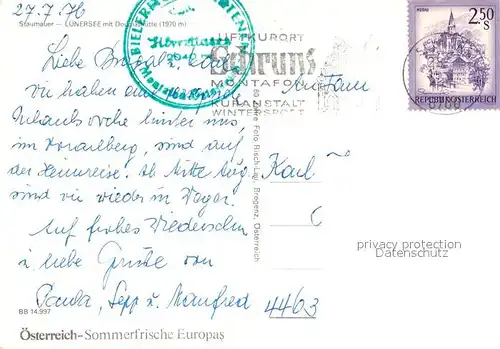 27.7.76
Staumauer – LÜNERSEE mit Douglasshütte (1970 m)
LUFTKURORT
Schruns
MONTAFON
KURANSTALT
WINTERSPORT
2.50 S
REPUBLIK ÖSTERREICH
Liebe
wir haben eine
Urlaubswoche hinter uns,
im Vorarlberg, sind auf
der Heimreise. Ab Mitte Aug.
sind wir wieder in
Auf frohes Wiedersehen
u. liebe Grüße von
Paula, Sepp u. Manfred
An Fam.
Karl
C
4463
Foto Risch-Lau, Bregenz, Österreich
privacy protection
Datenschutz
BB 14.997
Österreich–Sommerfrische Europas